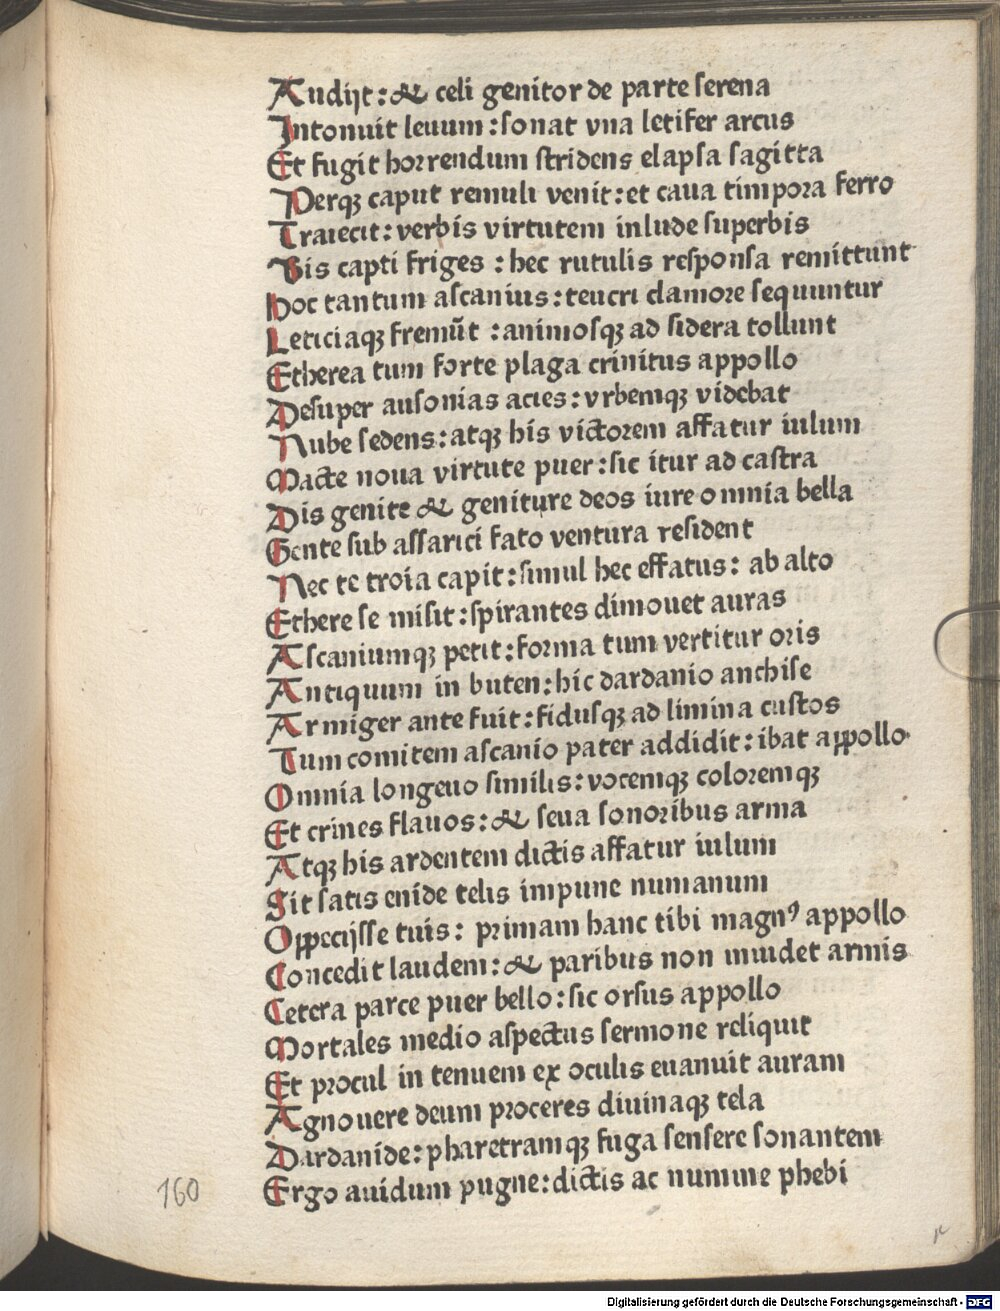 Audijt: & celi genitor de parte serena
Intonuit leuum: sonat vna letifer arcus
Et fugit horrendum stridens elapsa sagitta
Perqꝫ caput remuli venit: et caua timpora ferro
Traiecit: verbis virtutem inlude superbis
Bis capti friges: hec rutulis responsa remittunt
Hoc tantum ascanius: teucri clamore sequuntur
Leticiaqꝫ fremūt: animosqꝫ ad sidera tollunt
Etherea tum forte plaga crinitus appollo
Desuper ausonias acies: vrbemqꝫ videbat
Nube sedens: atqꝫ his victorem affatur iulum
Macte noua virtute puer: sic itur ad castra
Dis genite & geniture deos iure omnia bella
Gente sub assarici fato ventura resident
Nec te troia capit: simul hec effatus: ab alto
Ethere se misit: spirantes dimouet auras
Ascaniumqꝫ petit: forma tum vertitur oris
Antiquum in buten: hic dardanio anchise
Armiger ante fuit: fidusqꝫ ad limina custos
Tum comitem ascanio pater addidit: ibat appollo
Omnia longeuo similis: vocemqꝫ coloremqꝫ
Et crines flauos: & seua sonoribus arma
Atqꝫ his ardentem dictis affatur iulum
Sit satis enide telis impune numanum
Oppecijsse tuis: primam hanc tibi magnꝰ appollo
Concedit laudem: & paribus non inuidet armis
Cetera parce puer bello: sic orsus appollo
Mortales medio aspectus sermone reliquit
Et procul in tenuem ex oculis euanuit auram
Agnouere deum proceres diuinaqꝫ tela
Dardanide: pharetramqꝫ fuga sensere sonantem
Ergo auidum pugne: dictis ac numine phebi
160
Digitalisierung gefördert durch die Deutsche Forschungsgemeinschaft - DFG